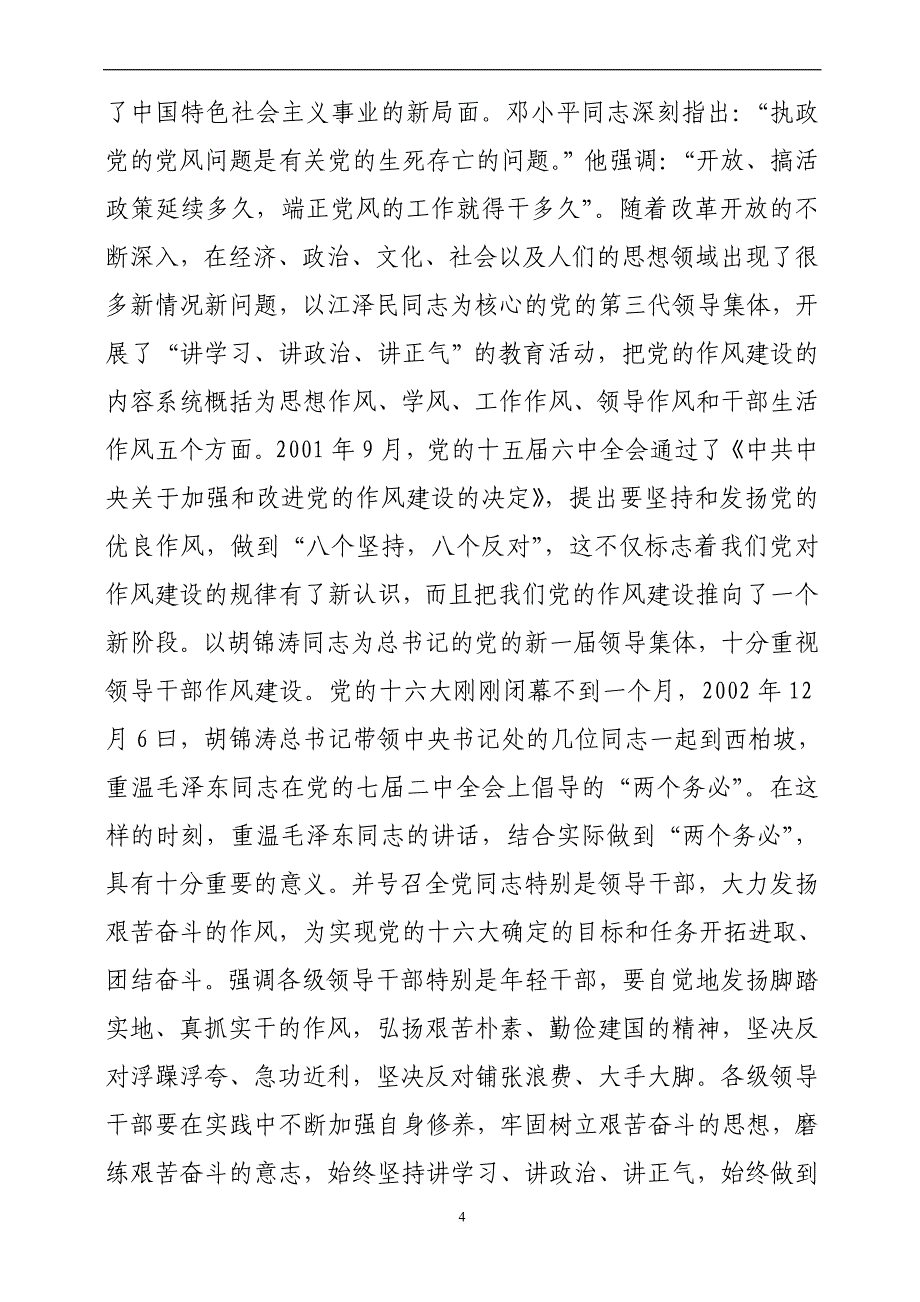 了中国特色社会主义事业的新局面。邓小平同志深刻指出：“执政
党的党风问题是有关党的生死存亡的问题。”他强调：“开放、搞活
政策延续多久，端正党风的工作就得干多久”。随着改革开放的不
断深入，在经济、政治、文化、社会以及人们的思想领域出现了很
多新情况新问题，以江泽民同志为核心的党的第三代领导集体，开
展了“讲学习、讲政治、讲正气”的教育活动，把党的作风建设的
内容系统概括为思想作风、学风、工作作风、领导作风和干部生活
作风五个方面。2001年9月，党的十五届六中全会通过了《中共中
央关于加强和改进党的作风建设的决定》，提出要坚持和发扬党的
优良作风，做到“八个坚持，八个反对”，这不仅标志着我们党对
作风建设的规律有了新认识，而且把我们党的作风建设推向了一个
新阶段。以胡锦涛同志为总书记的党的新一届领导集体，十分重视
领导干部作风建设。党的十六大刚刚闭幕不到一个月，2002年12
月6日，胡锦涛总书记带领中央书记处的几位同志一起到西柏坡，
重温毛泽东同志在党的七届二中全会上倡导的“两个务必”。在这
样的时刻，重温毛泽东同志的讲话，结合实际做到“两个务必”，
具有十分重要的意义。并号召全党同志特别是领导干部，大力发扬
艰苦奋斗的作风，为实现党的十六大确定的目标和任务开拓进取、
团结奋斗。强调各级领导干部特别是年轻干部，要自觉地发扬脚踏
实地、真抓实干的作风，弘扬艰苦朴素、勤俭建国的精神，坚决反
对浮躁浮夸、急功近利，坚决反对铺张浪费、大手大脚。各级领导
干部要在实践中不断加强自身修养，牢固树立艰苦奋斗的思想，磨
练艰苦奋斗的意志，始终坚持讲学习、讲政治、讲正气，始终做到
4